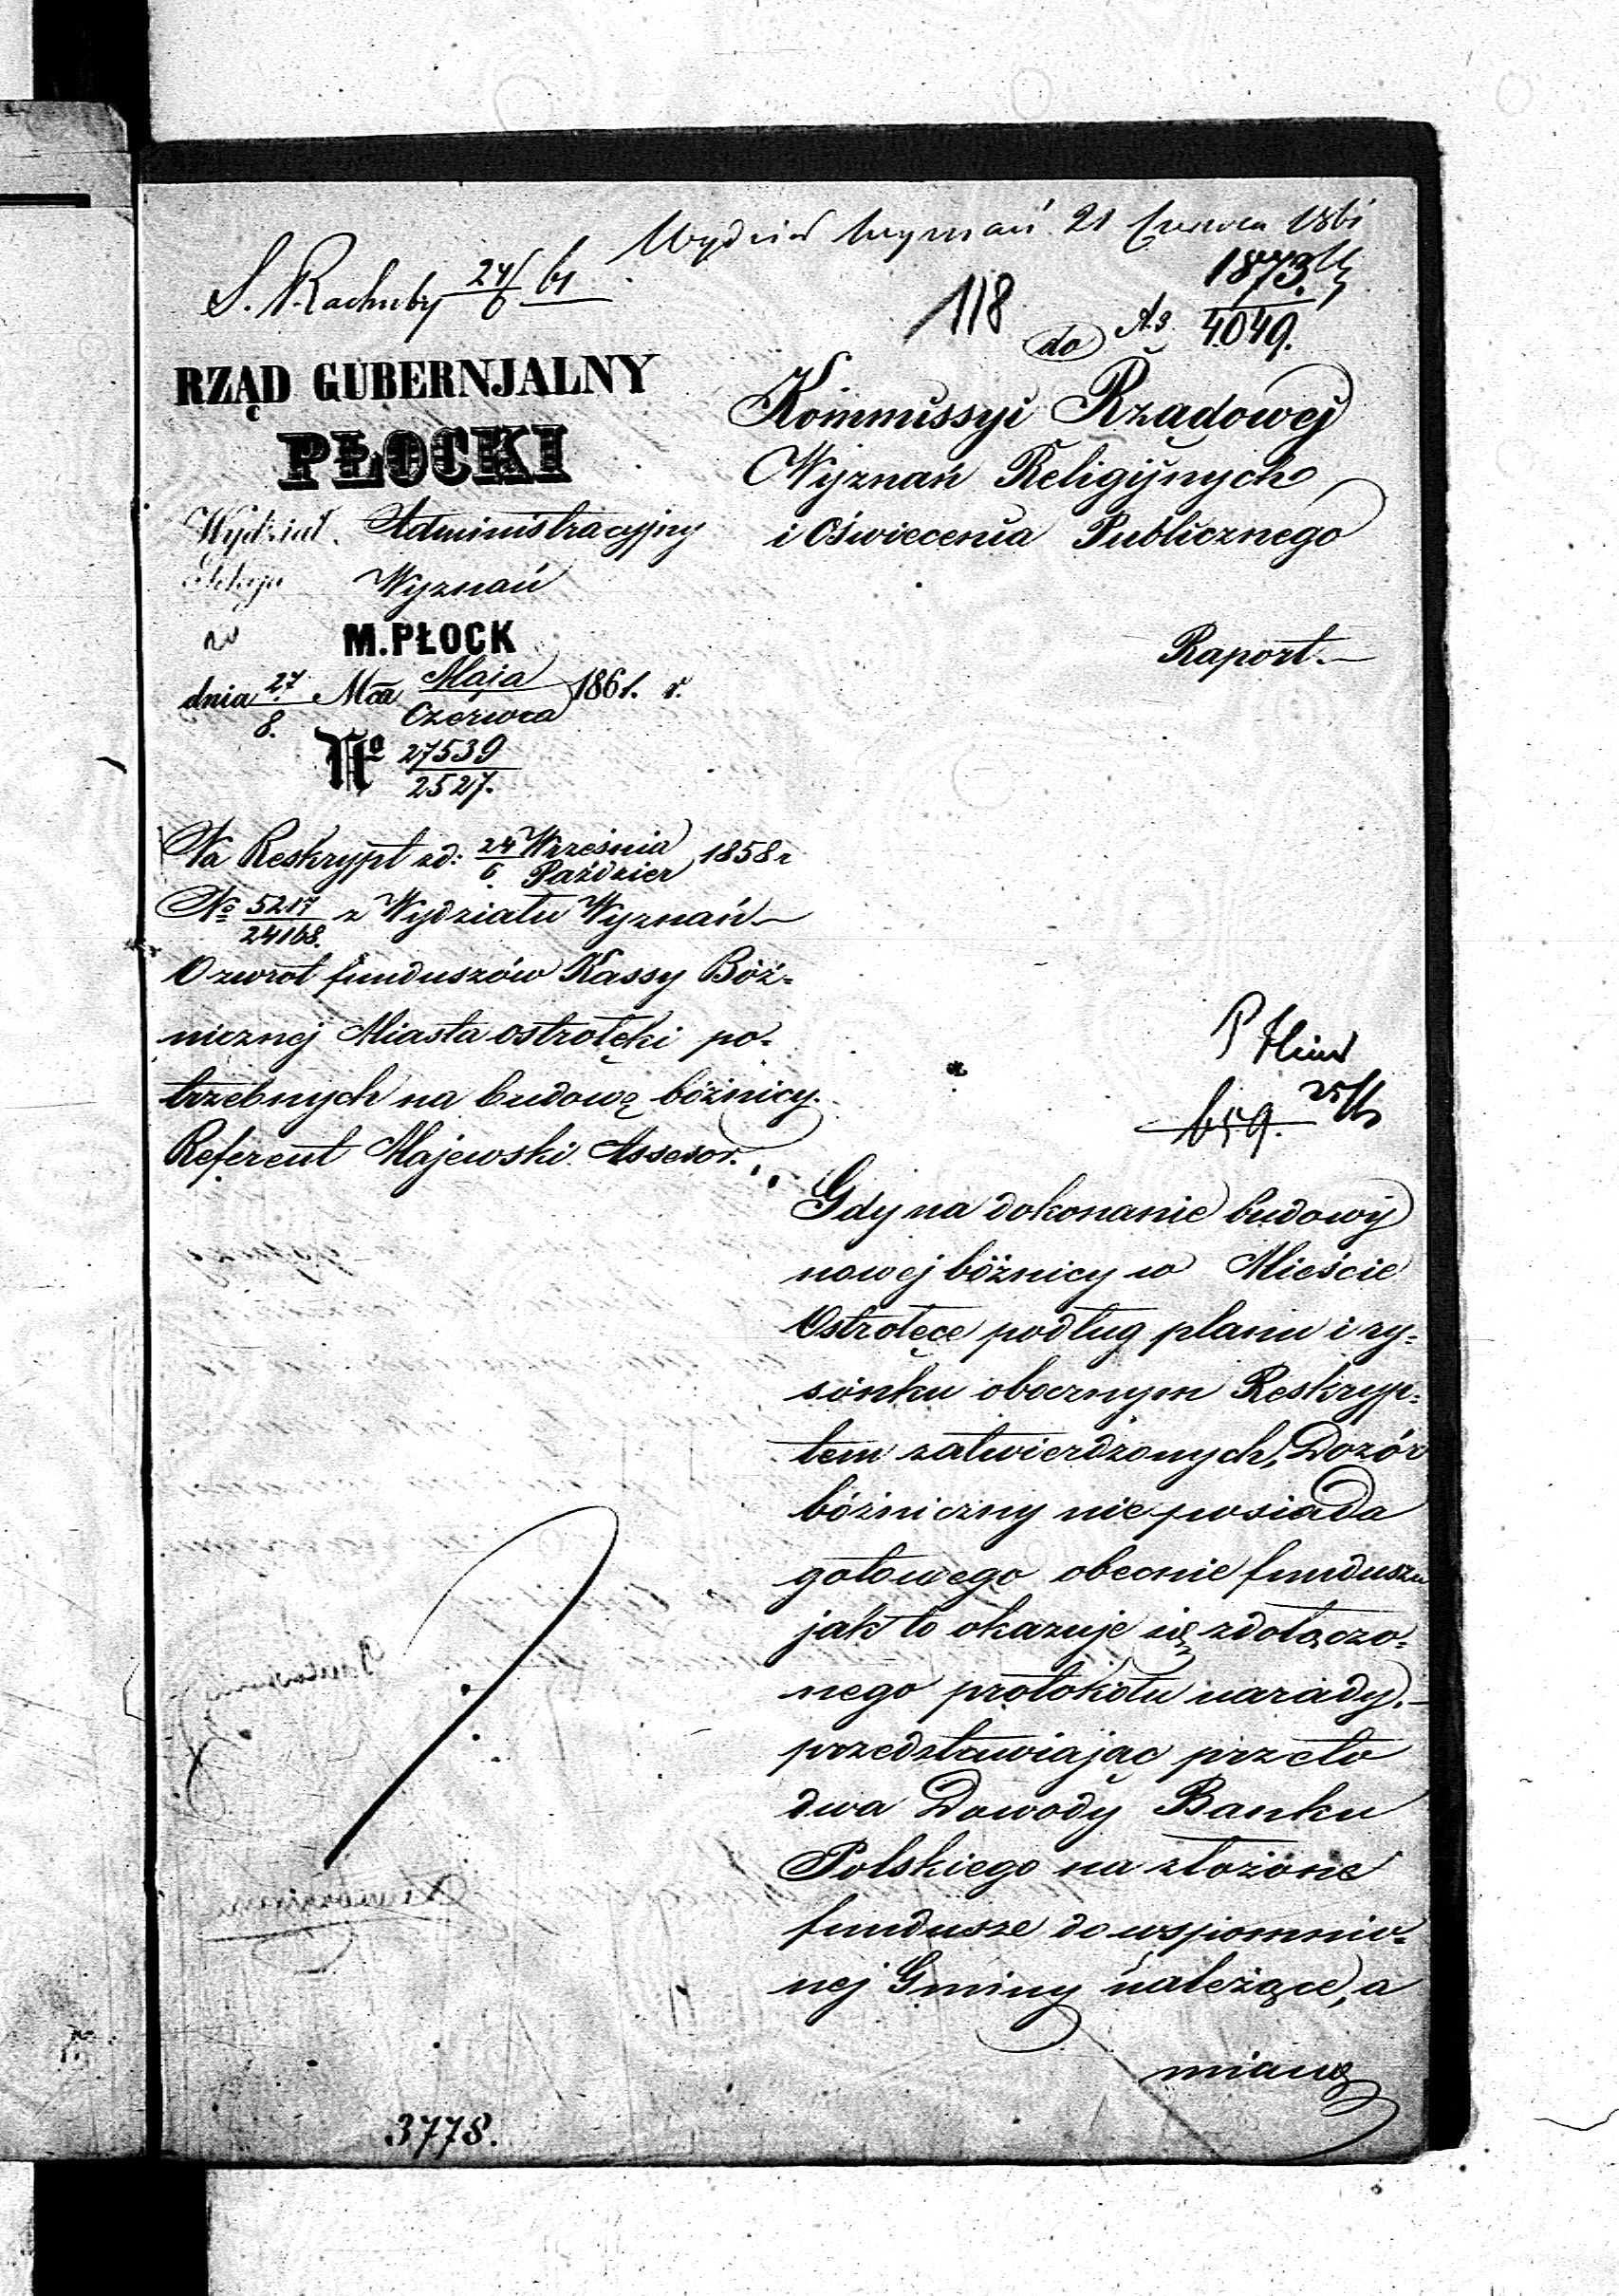 Wydział Wyznań 21 Czerwca 1861
S. Rachuby 24/6 61
118
1873
4049.
do
RZĄD GUBERNJALNY
PŁOCKI
Wydział Administracyjny
Sekcja Wyznań
w M. PŁOCK
dnia 27/8. Mca Maja/Czerwca 1861. r.
No 27539/2527.
Na Reskrypt zd: 24 Września/6 Paździer 1858 r
No 5217/24168. z Wydziału Wyznań
O zwrot funduszów Kassy Bóż-
nicznej Miasta Ostrołęki po-
trzebnych na budowę bóżnicy.
Referent Majewski Assesor.
Kommissyi Rządowej
Wyznań Religijnych
i Oświecenia Publicznego
Raport.
659.
Gdy na dokonanie budowy
nowej bóżnicy w Mieście
Ostrołęce podług planu i ry-
sónku obocznym Reskryp-
tem zatwierdzonych, Dozór
bóżniczny nie posiada
gotowego obecnie funduszu
jak to okazuje się z dołączo-
nego protokółu narady.
przedstawiając przeto
dwa Dowody Banku
Polskiego na złożone
fundusze do wspomnio-
nej Gminy należące, a
mianę
3778.